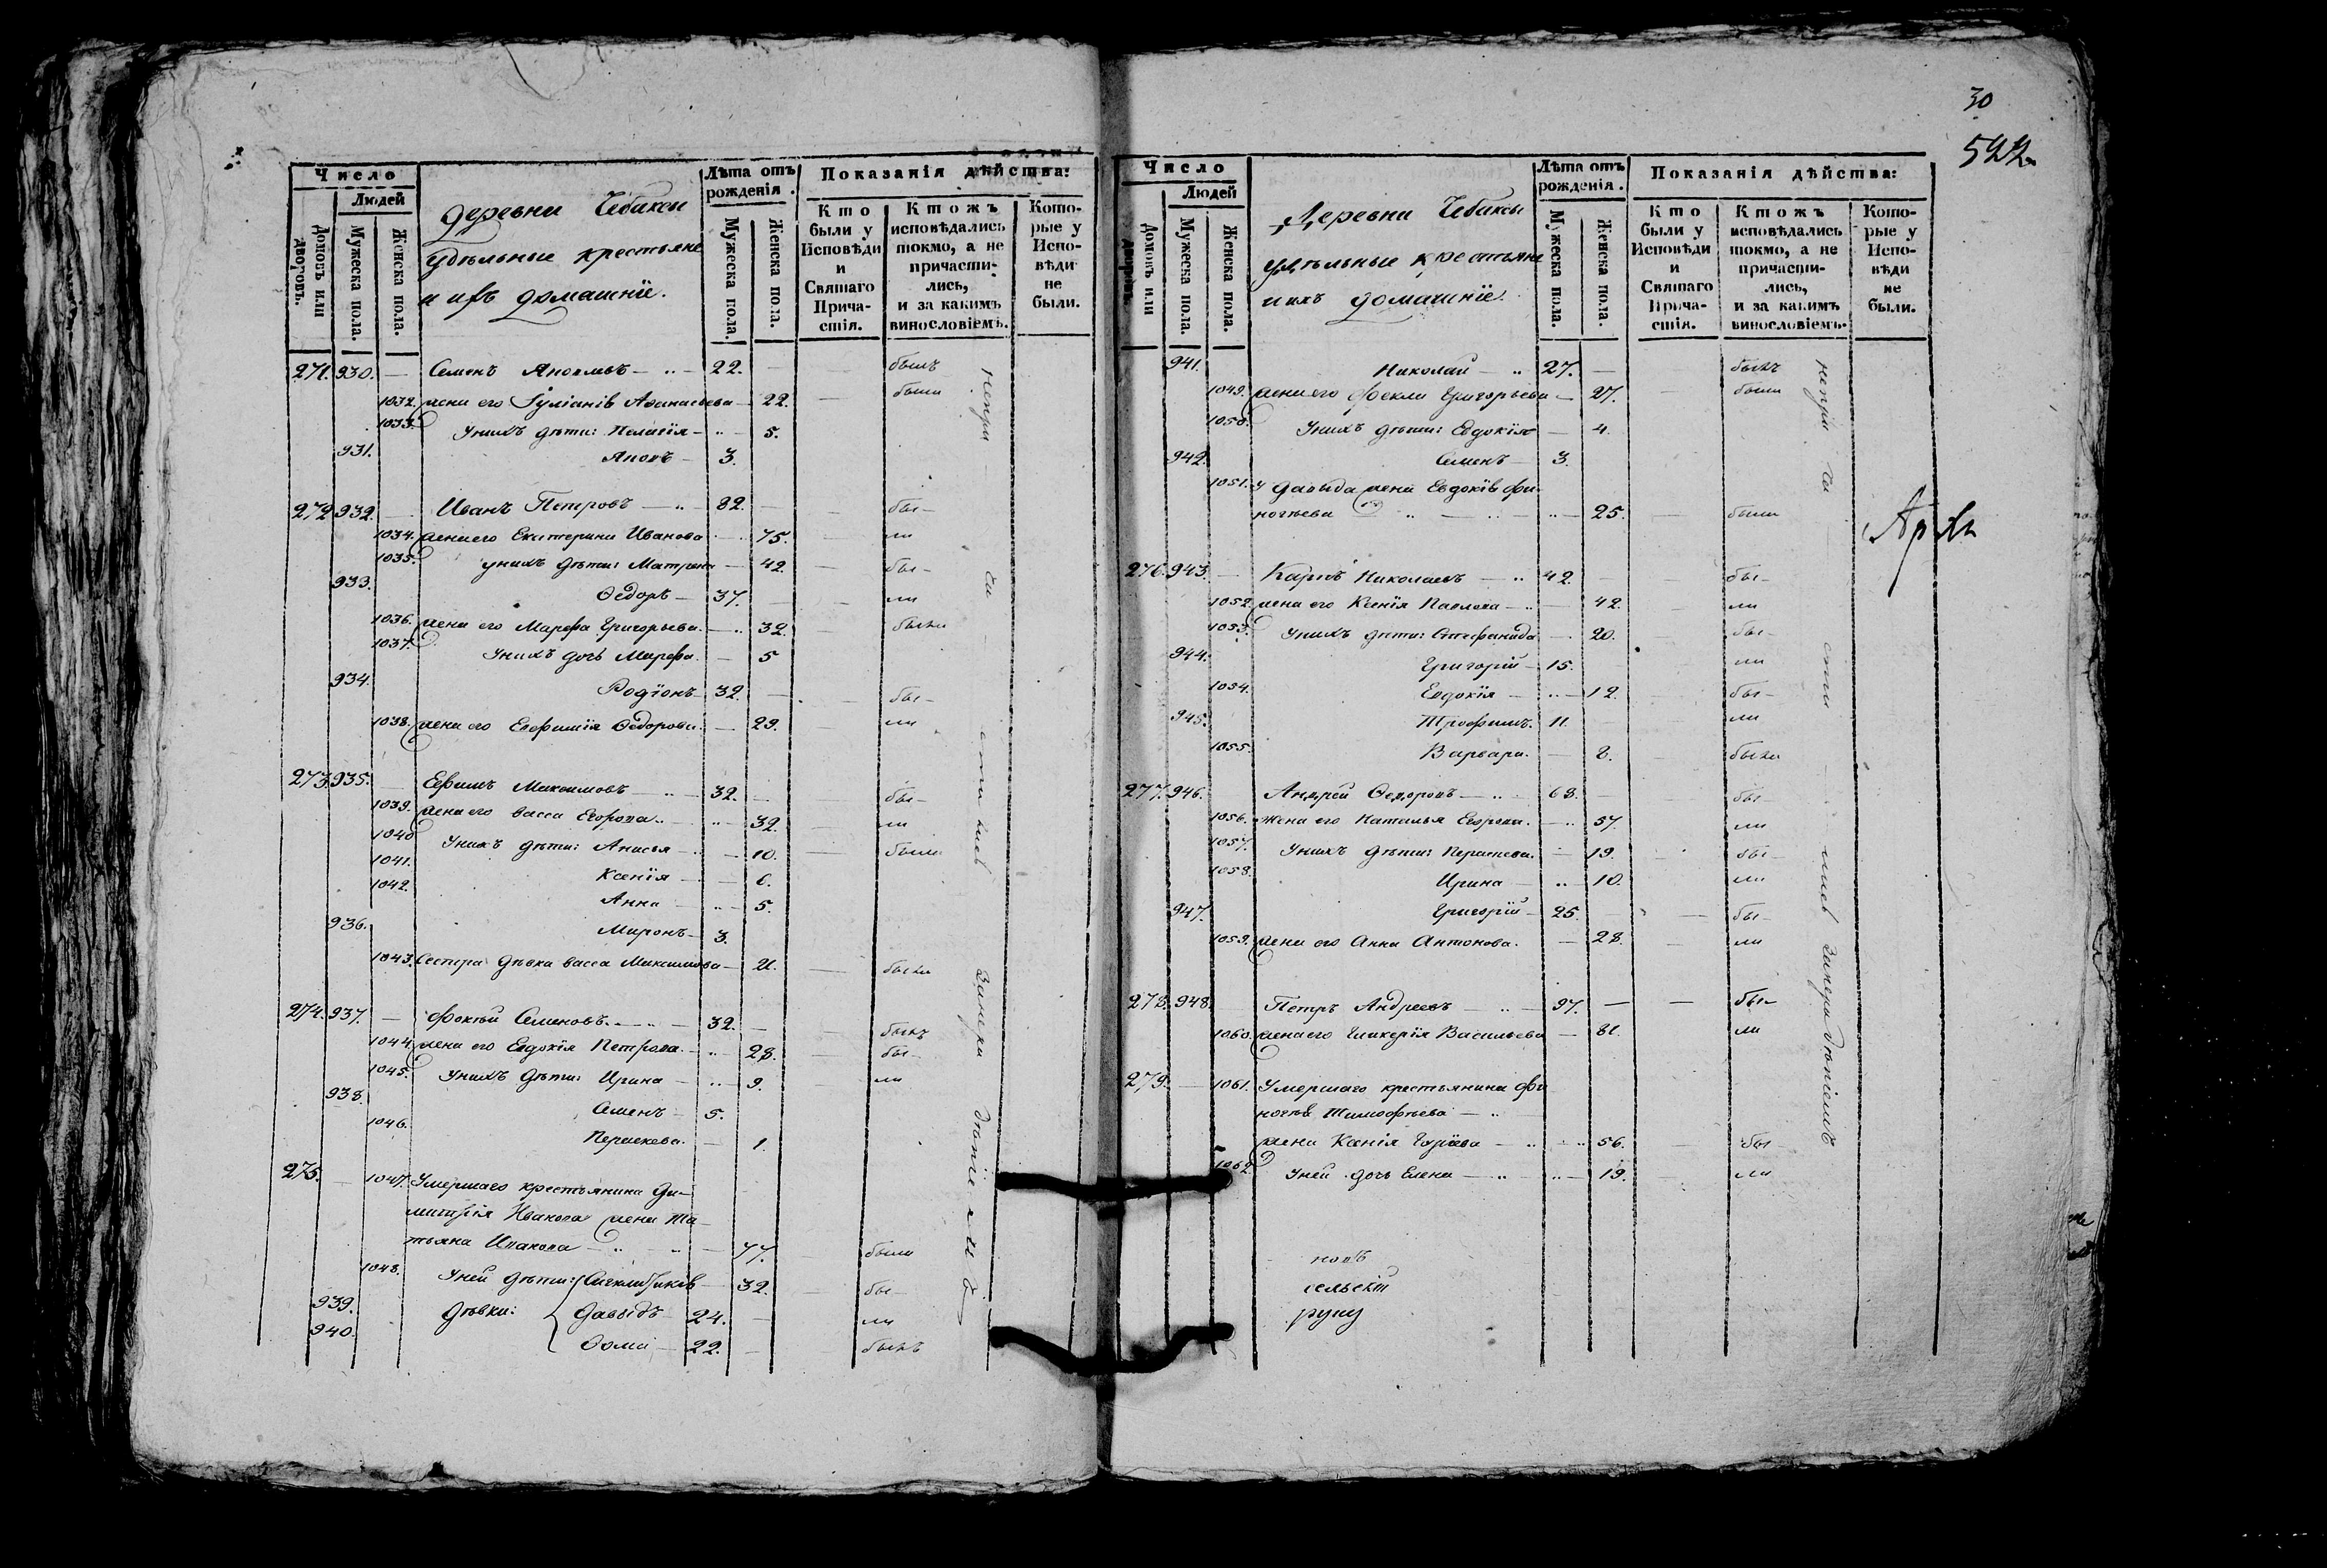 Число
Людей
Домовъ или дворовъ.
Мужеска пола.
Женска пола.
Деревни Чебаксы
удѣльные крестьяне
и ихъ домашніе.
Лѣта отъ рожденія.
Мужеска пола.
Женска пола.
Показанія дѣйства:
Кто были у Исповѣди и Святаго Причастія.
Ктожъ исповѣдались токмо, а не причастились, и за какимъ винословіемъ.
Которые у Исповѣди не были.
271. 930. — Семенъ — 22. — былъ
1032. жена его Іуліаніѣ — 22. — были
1033. Унихъ дѣти: Пелагія — 5.
931. 3.
272. 932. — Иванъ Петровъ — 82. — бы-
1034. жена его Екатерина Иванова — 75. ли
1035. Унихъ дѣти: Матрена — 42. — бы-
933. Ѳедоръ — 37. — ли
1036. жена его Марфа Григорьева — 32. — были
1037. Унихъ дочь Марфа — 5
934. Родіонъ — 32. — бы-
1038. жена его Евфимія Ѳедорова — 29. — ли
273. 935. — Ефимъ Максимовъ — 32. — бы-
1039. жена его Васса Егорова — 32. — ли
1040. Унихъ дѣти: Анисья — 10. — были
1041. Ксенія — 6.
1042. Анна — 5.
936. Миронъ — 3.
1043. Сестра дѣвка Васса Максимова — 21. — были
274. 937. — Фокѣй Семеновъ — 32. — былъ
1044. жена его Евдокія Петрова — 28. — бы-
1045. Унихъ дѣти: Ирина — 9. ли
938. Семенъ — 5.
1046. Параскева — 1.
275. — 1047. Умершаго крестьянина Ди-
митрія Иванова жена Та-
тьяна — 77. — были
1048. Уней дѣти: — 32. — бы-
939. дѣвки: Давыдъ — 24. — ли
940. Ѳома — 22. — былъ
непри — ча — стились за нерадѣніемъ
30
522
Число
Людей
Домовъ или дворовъ.
Мужеска пола.
Женска пола.
Деревни Чебаксы
удѣльные крестьяне
и ихъ домашніе.
Лѣта отъ рожденія.
Мужеска пола.
Женска пола.
Показанія дѣйства:
Кто были у Исповѣди и Святаго Причастія.
Ктожъ исповѣдались токмо, а не причастились, и за какимъ винословіемъ.
Которые у Исповѣди не были.
941. Николай — 27. — былъ
1049. жена его Фекла Григорьева — 27. — были
1050. Унихъ дѣти: Евдокія — 4.
942. Семенъ — 3.
1051. У Давыда жена Евдокіѣ Фи-
ногѣева — 25. — были
276. 943. — Карпъ Николаевъ — 42. — бы-
1052. жена его Ксенія Павлова — 42. ли
1053. Унихъ дѣти: Стефанида — 20. — бы-
944. Григорій — 15. ли
1054. Евдокія — 12. — бы-
945. Трофимъ. 11. — ли
1055. Варвара. — 8. — были
277. 946. Андрей Ѳедоровъ — 68. — бы-
1056. Жена его Наталья Егорова. — 57. ли
1057. Унихъ дѣти: Параскева. — 19. — бы-
1058. Ирина — 10. ли
947. Григорій — 25. — бы-
1059. жена его Анна Антонова. — 28. — ли
278. 948. — Петръ Андреевъ — 97. — — бы-
1060. жена его Гликерія Васильева — 81. ли
279. — 1061. Умершаго крестьянина Фи
ногѣя Тимофѣева —
жена Ксенія — 56. — бы-
1062. Уней дочь Елена — 19. — ли
непри — ча — сти — лись за нерадѣніемъ
сельскій
руку